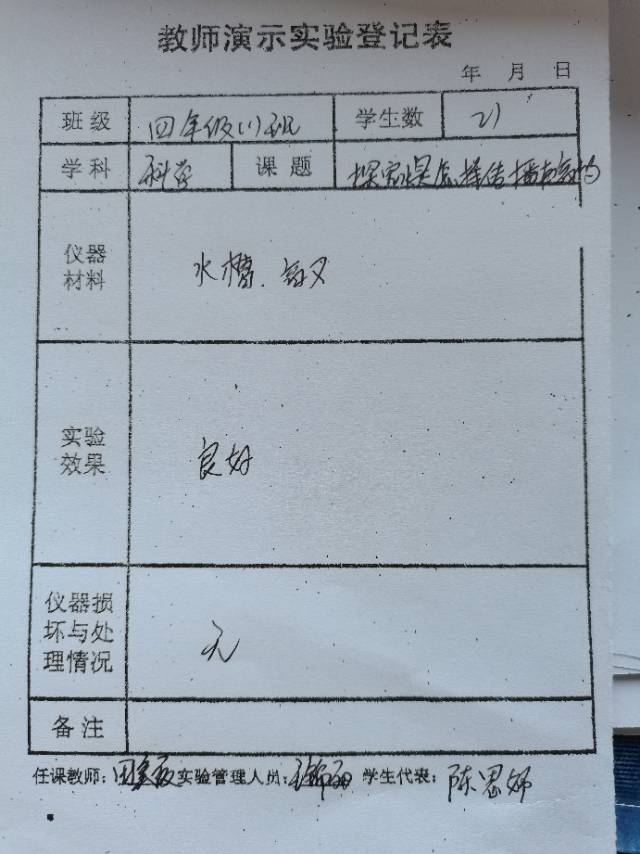 教师演示实验登记表
年 月 日
班级 四年级(1)班 学生数 21
学科 科学 课题 探究水是怎样传播声音的
仪器材料 水槽、音叉
实验效果 良好
仪器损坏与处理情况 无
备注
任课教师: 实验管理人员: 学生代表: 陈思妍